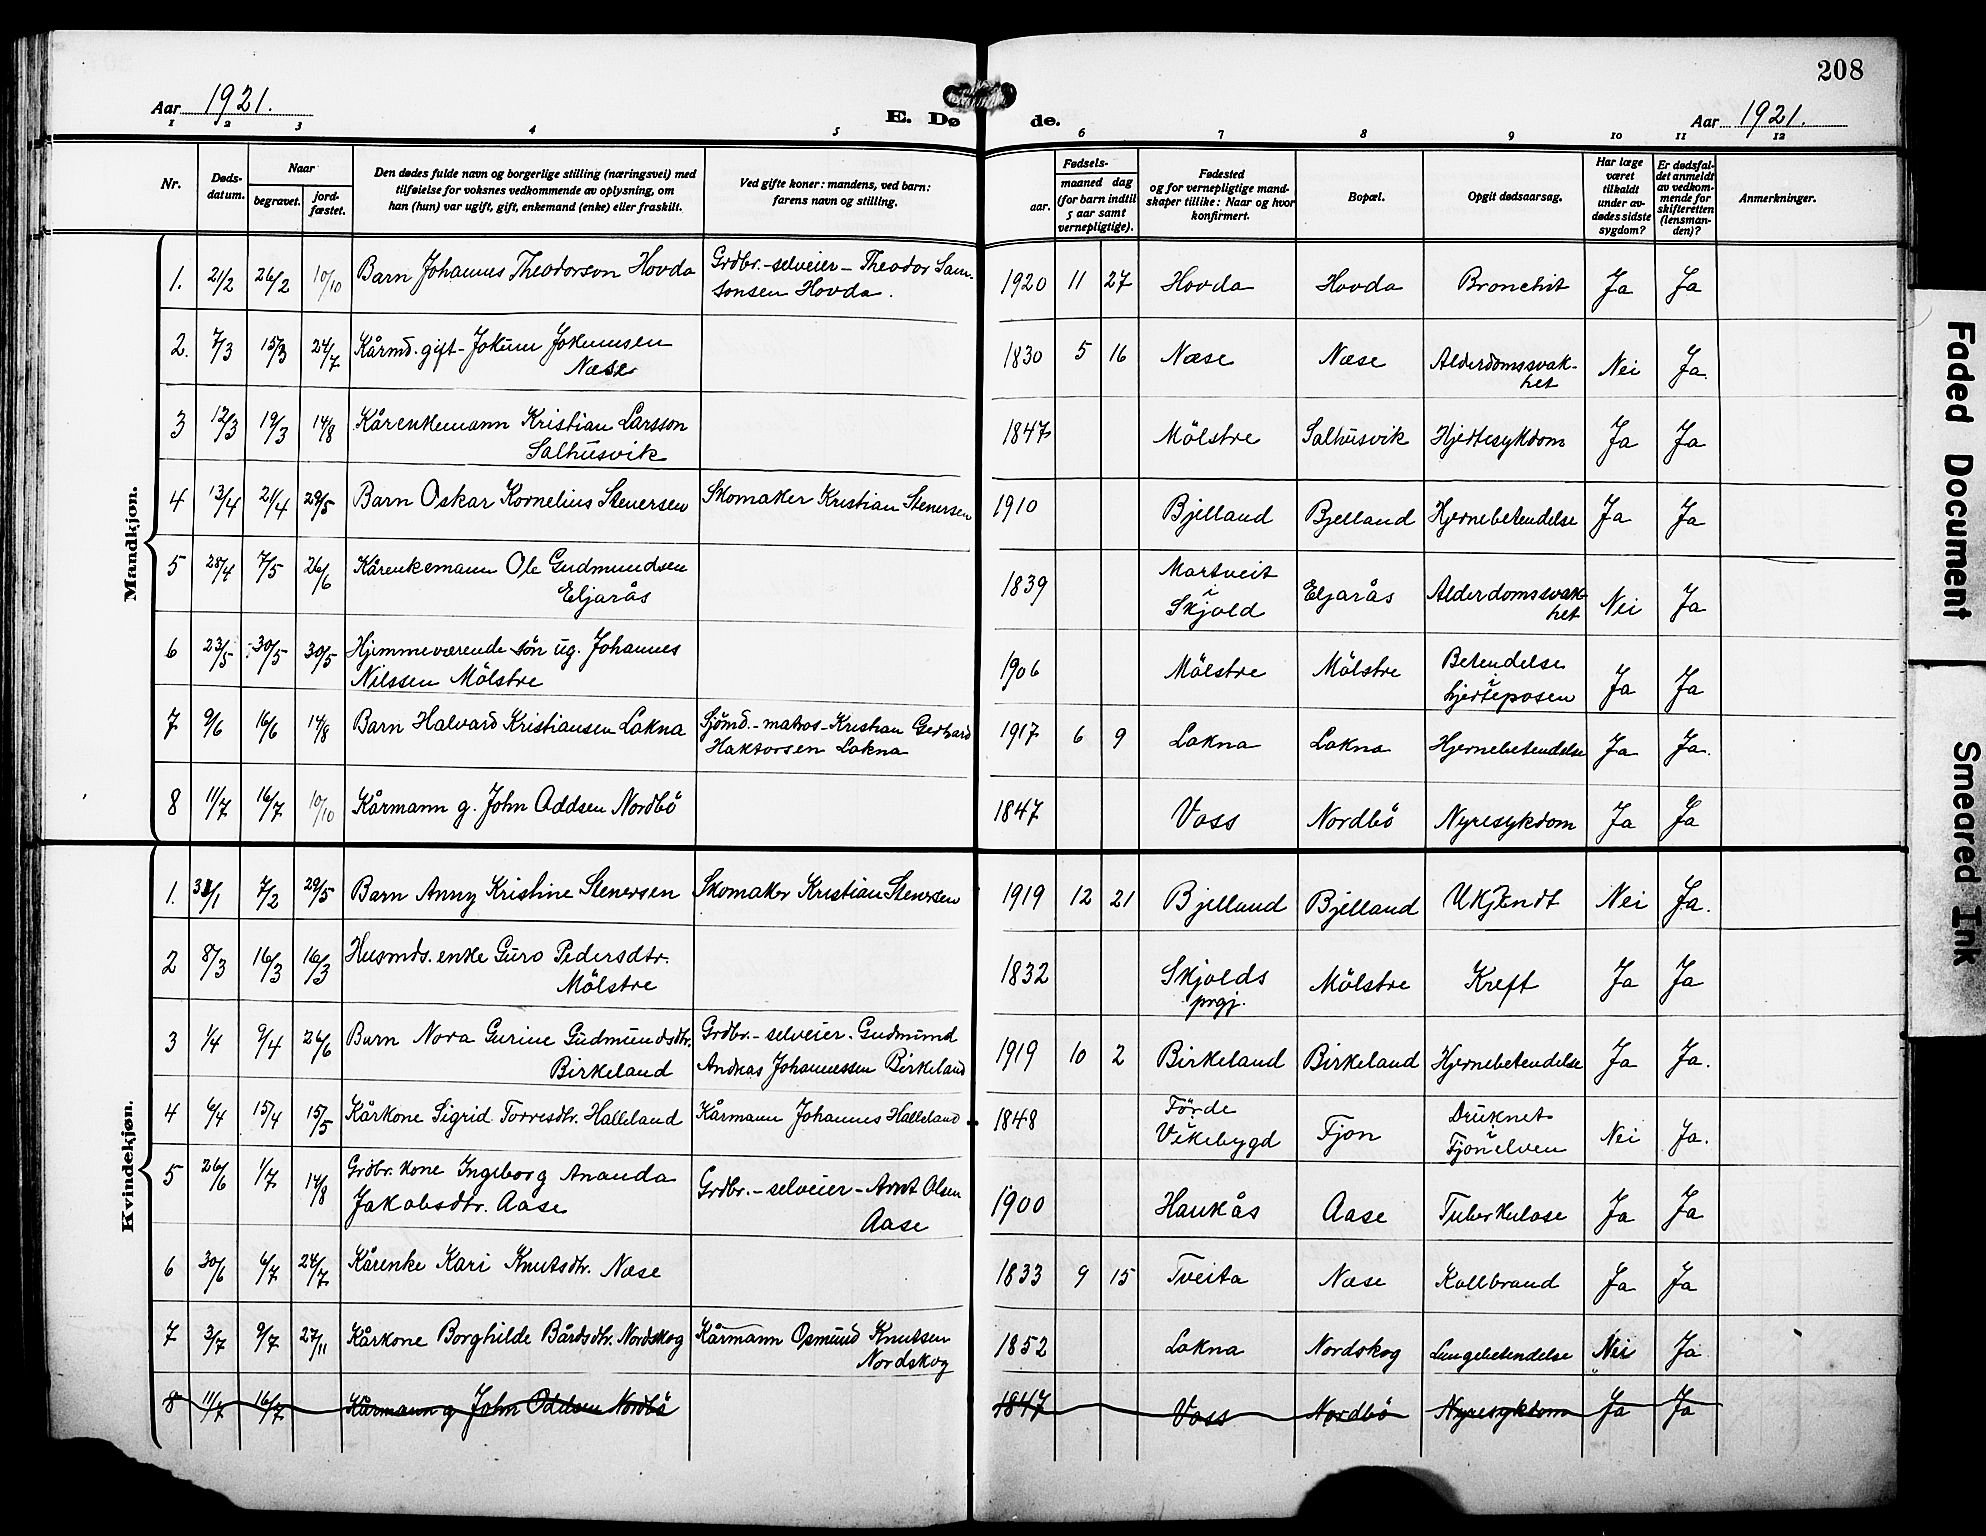 208
Aar 1921.
E. Dø de.
Aar 1921.
1 2 3 4 5 6 7 8 9 10 11 12
Nr.
Døds-
datum.
Naar
begravet.
jord-
fæstet.
Den dødes fulde navn og borgerlige stilling (næringsvei) med
tilføielse for voksnes vedkommende av oplysning, om
han (hun) var ugift, gift, enkemand (enke) eller fraskilt.
Ved gifte koner: mandens, ved barn:
farens navn og stilling.
Fødsels-
aar.
maaned dag
(for barn indtil
5 aar samt
vernepligtige).
Fødested
og for vernepligtige mand-
skaper tillike: Naar og hvor
konfirmert.
Bopæl.
Opgit dødsaarsag.
Har læge
været
tilkaldt
under av-
dødes sidste
sygdom?
Er dødsfal-
det anmeldt
av vedkom-
mende for
skifteretten
(lensman-
den)?
Anmerkninger.
Mandkjøn.
1. 21/2 26/2 10/10 Barn Johannes Theodorson Hovda Grdbr.-selveier- Theodor Sam-
sonsen Hovda. 1920 11 27 Hovda Hovda Bronchit Ja Ja
2. 7/3 15/3 24/7 Kårmd. gift- Jokum Jokumsen
Næse 1830 5 16 Næse Næse Alderdomssvak-
het Nei Ja
3 12/3 19/3 14/8 Kårenkemann Kristian Larsson
Salhusvik 1847 Mölstre Salhusvik Hjertesykdom Ja Ja
4 13/4 21/4 29/5 Barn Oskar Kornelius Stenersen Skomaker Kristian Stenersen 1910 Bjelland Bjelland Hjernebetendelse Ja Ja
5 28/4 7/5 26/6 Kårenkemann Ole Gudmundsen
Eljarås 1839 Martveit
i
Skjold Eljarås Alderdomssvak-
het Nei Ja
6 23/5 30/5 30/5 Hjemmeværende sön ug. Johannes
Nilssen Mölstre 1906 Mölstre Mölstre Betendelse
i
hjerteposen Ja Ja
7 9/6 16/6 14/8 Barn Halvard Kristiansen Lakna Sjömd.-matros-Kristian Gerhard
Haktorsen Lakna 1917 6 9 Lakna Lakna Hjernebetendelse Ja Ja.
8 11/7 16/7 10/10 Kårmann g. John Oddsen Nordbö 1847 Voss Nordbö Nyresykdom Ja Ja
Kvindekjøn.
1. 31/1 7/2 29/5 Barn Anny Kristine Stenersen Skomaker Kristian Stenersen 1919 12 21 Bjelland Bjelland Ukjendt Nei Ja.
2 8/3 16/3 16/3 Husmds. enke Guro Pedersdtr.
Mölstre 1832 Skjolds
prgj. Mölstre Kreft Ja Ja
3 1/4 9/4 26/6 Barn Nora Gurine Gudmundsdtr.
Birkeland Grdbr.-selveier. Gudmund
Andreas Johannessen Birkeland 1919 10 2 Birkeland Birkeland Hjernebetendelse Ja Ja.
4 6/4 15/4 15/5 Kårkone Sigrid Torresdtr. Halleland Kårmann Johannes Halleland 1848 Förde
Vikebygd Fjon Druknet
i
Fjonelven Nei Ja.
5 26/6 1/7 14/8 Grdbr. kone Ingeborg Ananda
Jakobsdtr. Aase Grdbr.-selveier- Arnt Olsen
Aase 1900 Haukås Aase Tuberkulose Ja Ja
6 30/6 6/7 24/7 Kårenke Kari Knutsdtr. Næse 1833 9 15 Tveita Næse Kollbrand Ja Ja
7 3/7 9/7 27/11 Kårkone Borghilde Bårdsdtr. Nordskog Kårmann Osmund Knutsen
Nordskog 1852 Lakna Nordskog Lungebetendelse Nei Ja
8 11/7 16/7 Kårmann g John Oddsen Nordbö 1847 Voss Nordbö Nyresykdom Ja Ja
Faded Document
Smeared Ink